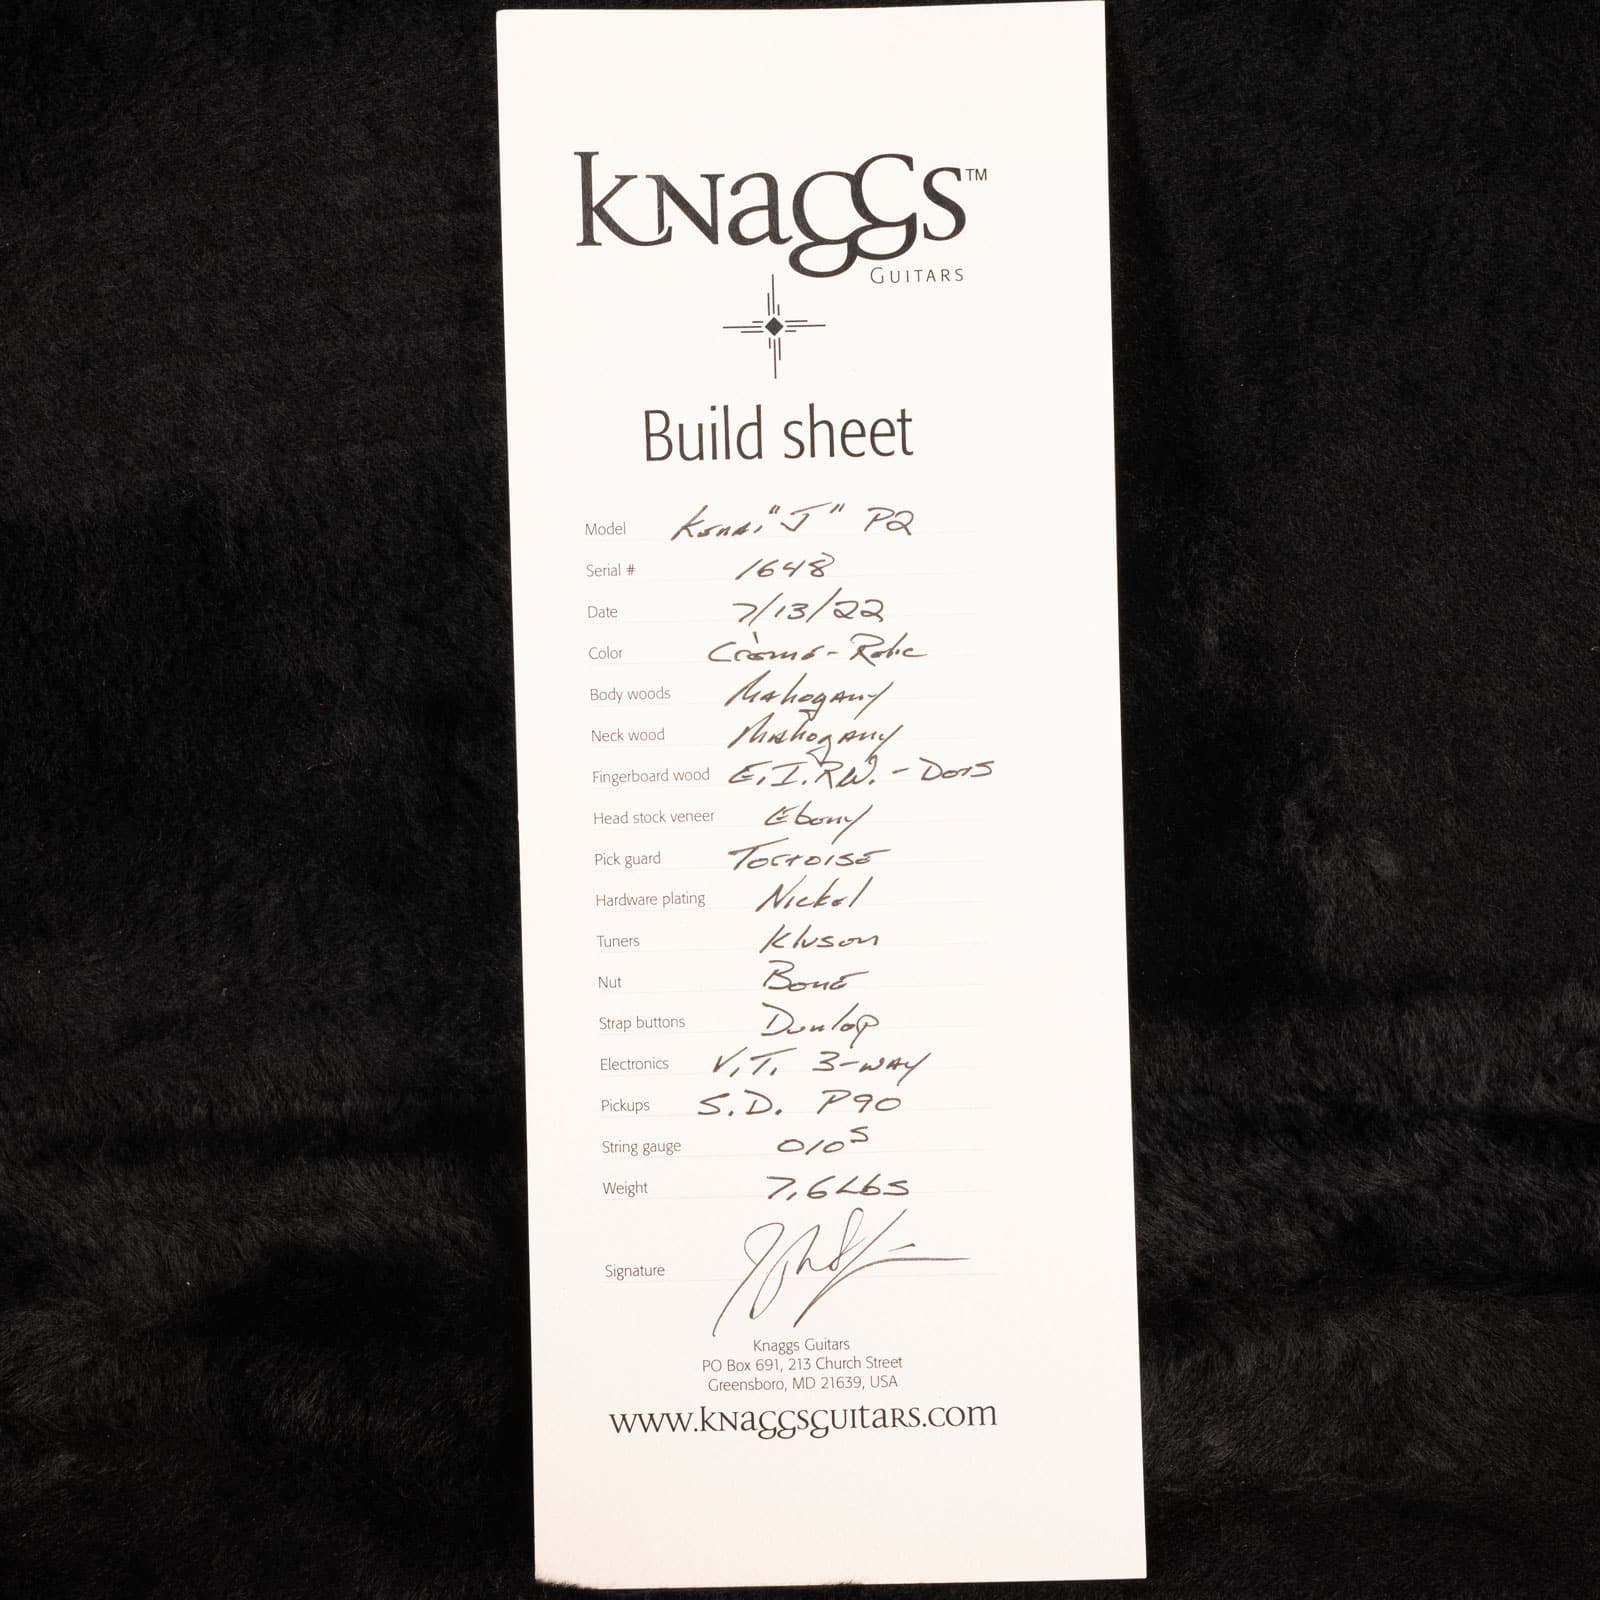 Knaggs™
Guitars
Build sheet
Model Kenai "J" P2
Serial # 1648
Date 7/13/22
Color Crème - Relic
Body woods Mahogany
Neck wood Mahogany
Fingerboard wood E.I.R.W. - Dots
Head stock veneer Ebony
Pick guard Tortoise
Hardware plating Nickel
Tuners Kluson
Nut Bone
Strap buttons Dunlop
Electronics V.T. 3-way
Pickups S.D. P90
String gauge 010s
Weight 7.6Lbs
Signature
Knaggs Guitars
PO Box 691, 213 Church Street
Greensboro, MD 21639, USA
www.knaggsguitars.com